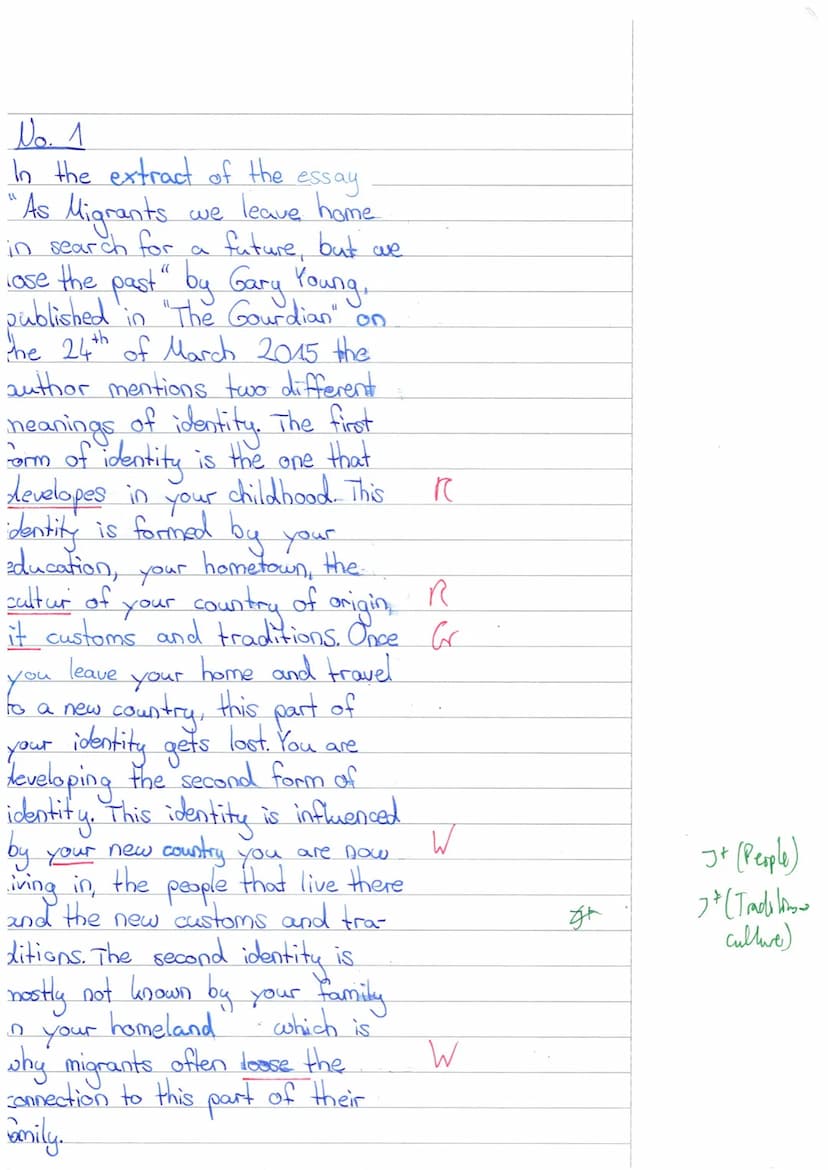 No. 1
In the extract of the essay
"As Migrants we leave home
in search for a future, but we
lose the past“ by Gary Young,
published in "The Gourdian" on
the 24th of March 2015 the
author mentions two different
meanings of identity. The first
form of identity is the one that
developes in your childhood. This R
identity is formed by your
education, your hometown, the
cultur of your country of origin, R
it customs and traditions. Once Gr
you leave your home and travel
to a new country, this part of
your identity gets lost. You are
developing the second form of
identity. This identity is influenced
by your new country you are now W J+ (People)
living in, the people that live there
and the new customs and tra- J+ J+ (Traditions
ditions. The second identity is culture)
mostly not known by your family
in your homeland which is
why migrants often loose the W
connection to this part of their
family.